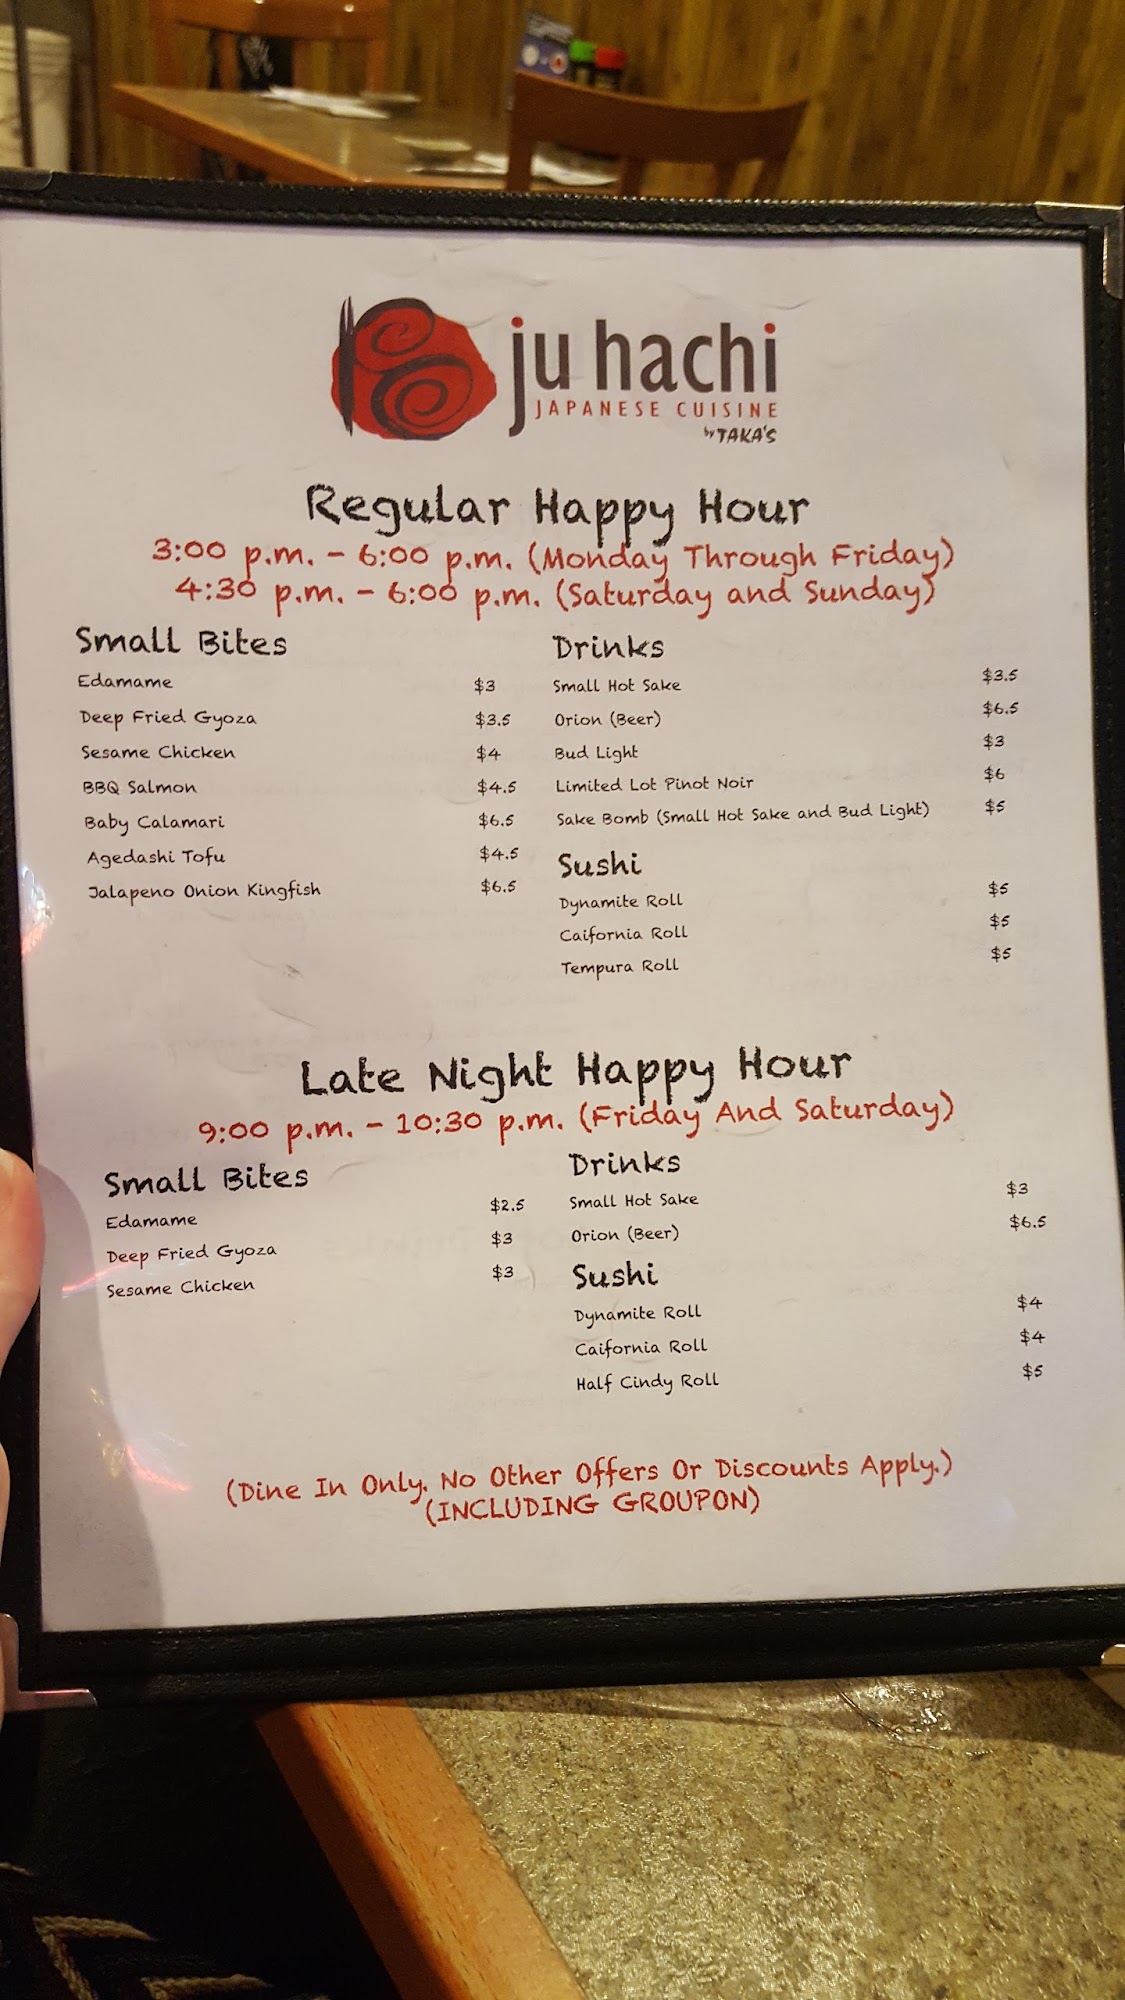 ju hachi
JAPANESE CUISINE
by TAKA'S
Regular Happy Hour
3:00 p.m. - 6:00 p.m. (Monday Through Friday)
4:30 p.m. - 6:00 p.m. (Saturday and Sunday)
Small Bites
Edamame $3
Deep Fried Gyoza $3.5
Sesame Chicken $4
BBQ Salmon $4.5
Baby Calamari $6.5
Agedashi Tofu $4.5
Jalapeno Onion Kingfish $6.5
Drinks
Small Hot Sake $3.5
Orion (Beer) $6.5
Bud Light $3
Limited Lot Pinot Noir $6
Sake Bomb (Small Hot Sake and Bud Light) $5
Sushi
Dynamite Roll $5
Caifornia Roll $5
Tempura Roll $5
Late Night Happy Hour
9:00 p.m. - 10:30 p.m. (Friday And Saturday)
Small Bites
Edamame $2.5
Deep Fried Gyoza $3
Sesame Chicken $3
Drinks
Small Hot Sake $3
Orion (Beer) $6.5
Sushi
Dynamite Roll $4
Caifornia Roll $4
Half Cindy Roll $5
(Dine In Only. No Other Offers Or Discounts Apply.)
(INCLUDING GROUPON)